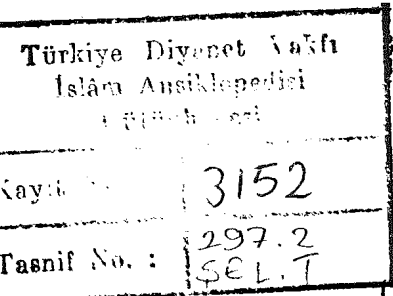 Türkiye Diyanet Vakfı
İslâm Ansiklopedisi
Kayıt 3152
Tasnif No. : 297.2
ŞEL.T